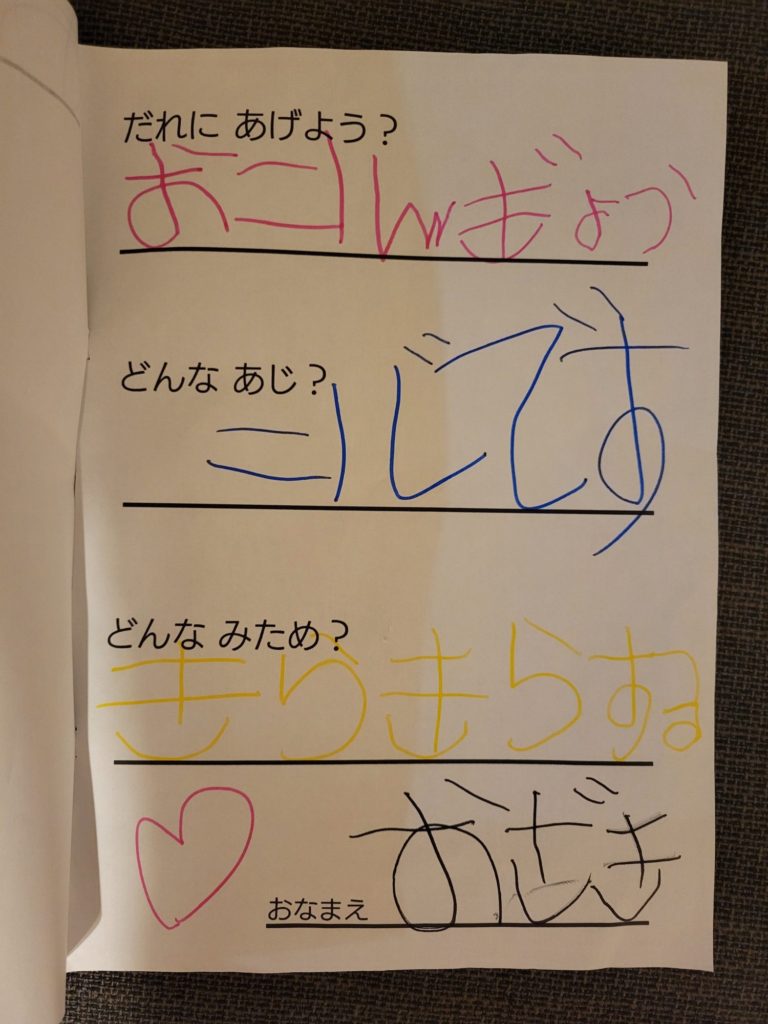 だれに あげよう？
おにんぎょう
どんな あじ？
にじです
どんな みため？
きらきらする
おなまえ おざき